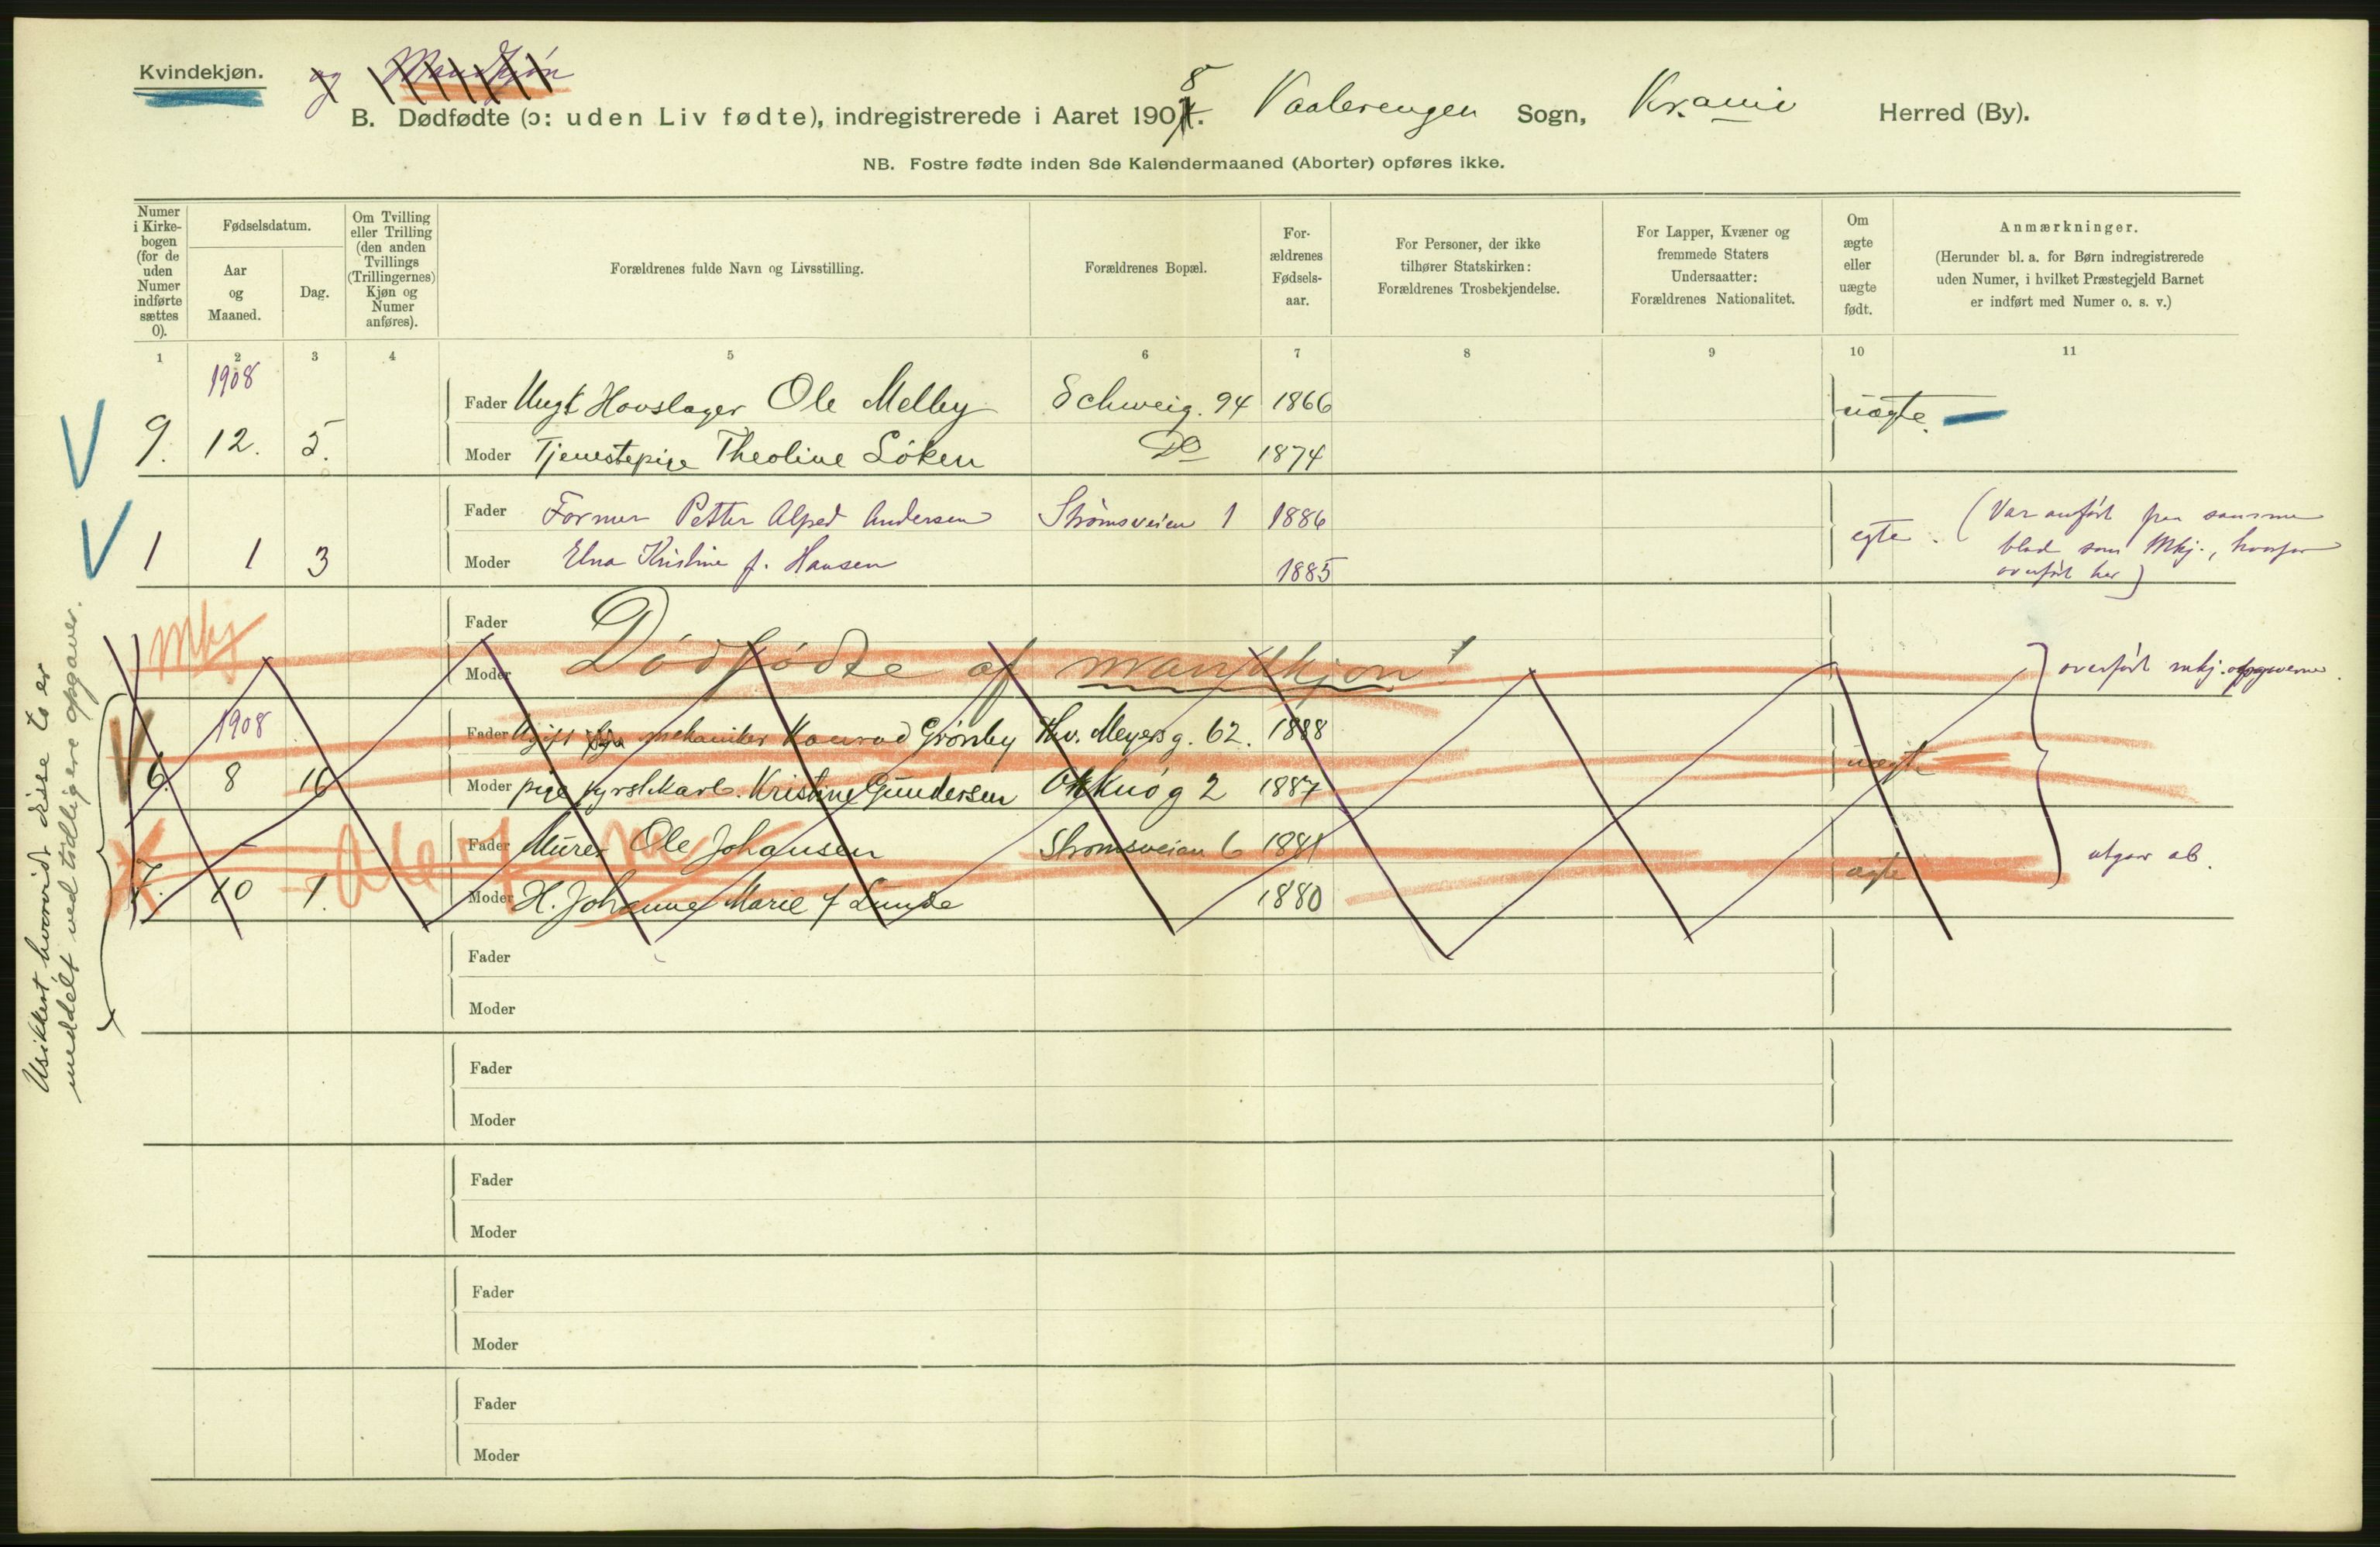 Kvindekjøn. og Mandkjøn
B. Dødfødte (ɔ: uden Liv fødte), indregistrerede i Aaret 1908. Vaalerengen Sogn, Kr.ania Herred (By).
NB. Fostre fødte inden 8de Kalendermaaned (Aborter) opføres ikke.
Numer i Kirkebogen (for de uden Numer indførte sættes 0).
Fødselsdatum.
Aar og Maaned.
Dag.
Om Tvilling eller Trilling (den anden Tvillings (Trillingernes) Kjøn og Numer anføres).
Forældrenes fulde Navn og Livsstilling.
Forældrenes Bopæl.
For-ældrenes Fødsels-aar.
For Personer, der ikke tilhører Statskirken: Forældrenes Trosbekjendelse.
For Lapper, Kvæner og fremmede Staters Undersaatter: Forældrenes Nationalitet.
Om ægte eller uægte født.
Anmærkninger.
(Herunder bl. a. for Børn indregistrerede uden Numer, i hvilket Præstegjeld Barnet er indført med Numer o. s. v.)
1 2 3 4 5 6 7 8 9 10 11
1908
Fader Ungk Hovslager Ole Melby Schweig. 94 1866 uægte.
9. 12. 5.
Moder Tjenestepige Theoline Löken Do 1874
Fader Former Petter Alfred Andersen Strømsveien 1 1886
1 1 3 egte. (Var anført paa samme
blad som Mkj., hvorfor
overført her)
Moder Elna Kristine f. Hansen 1885
Mkj
Fader
Moder
Dødfødte af mandkjøn!
overført mkj. opgaverne.
1908
Fader Ugift mekaniker Konrad Grönby Thv. Meyersg. 62. 1888
6. 8 16 uægte
Moder pige Kristine Gundersen 2 1887
Fader Murer Ole Johansen Strømsveien 6 1881
7. 10 1. ægte
utgaar ab.
Moder H. Johanne Marie f Lunde 1880
Fader
Moder
Fader
Moder
Fader
Moder
Fader
Moder
Fader
Moder
Usikkert hvorvidt disse to er
meddelt ved tidligere opgaver.